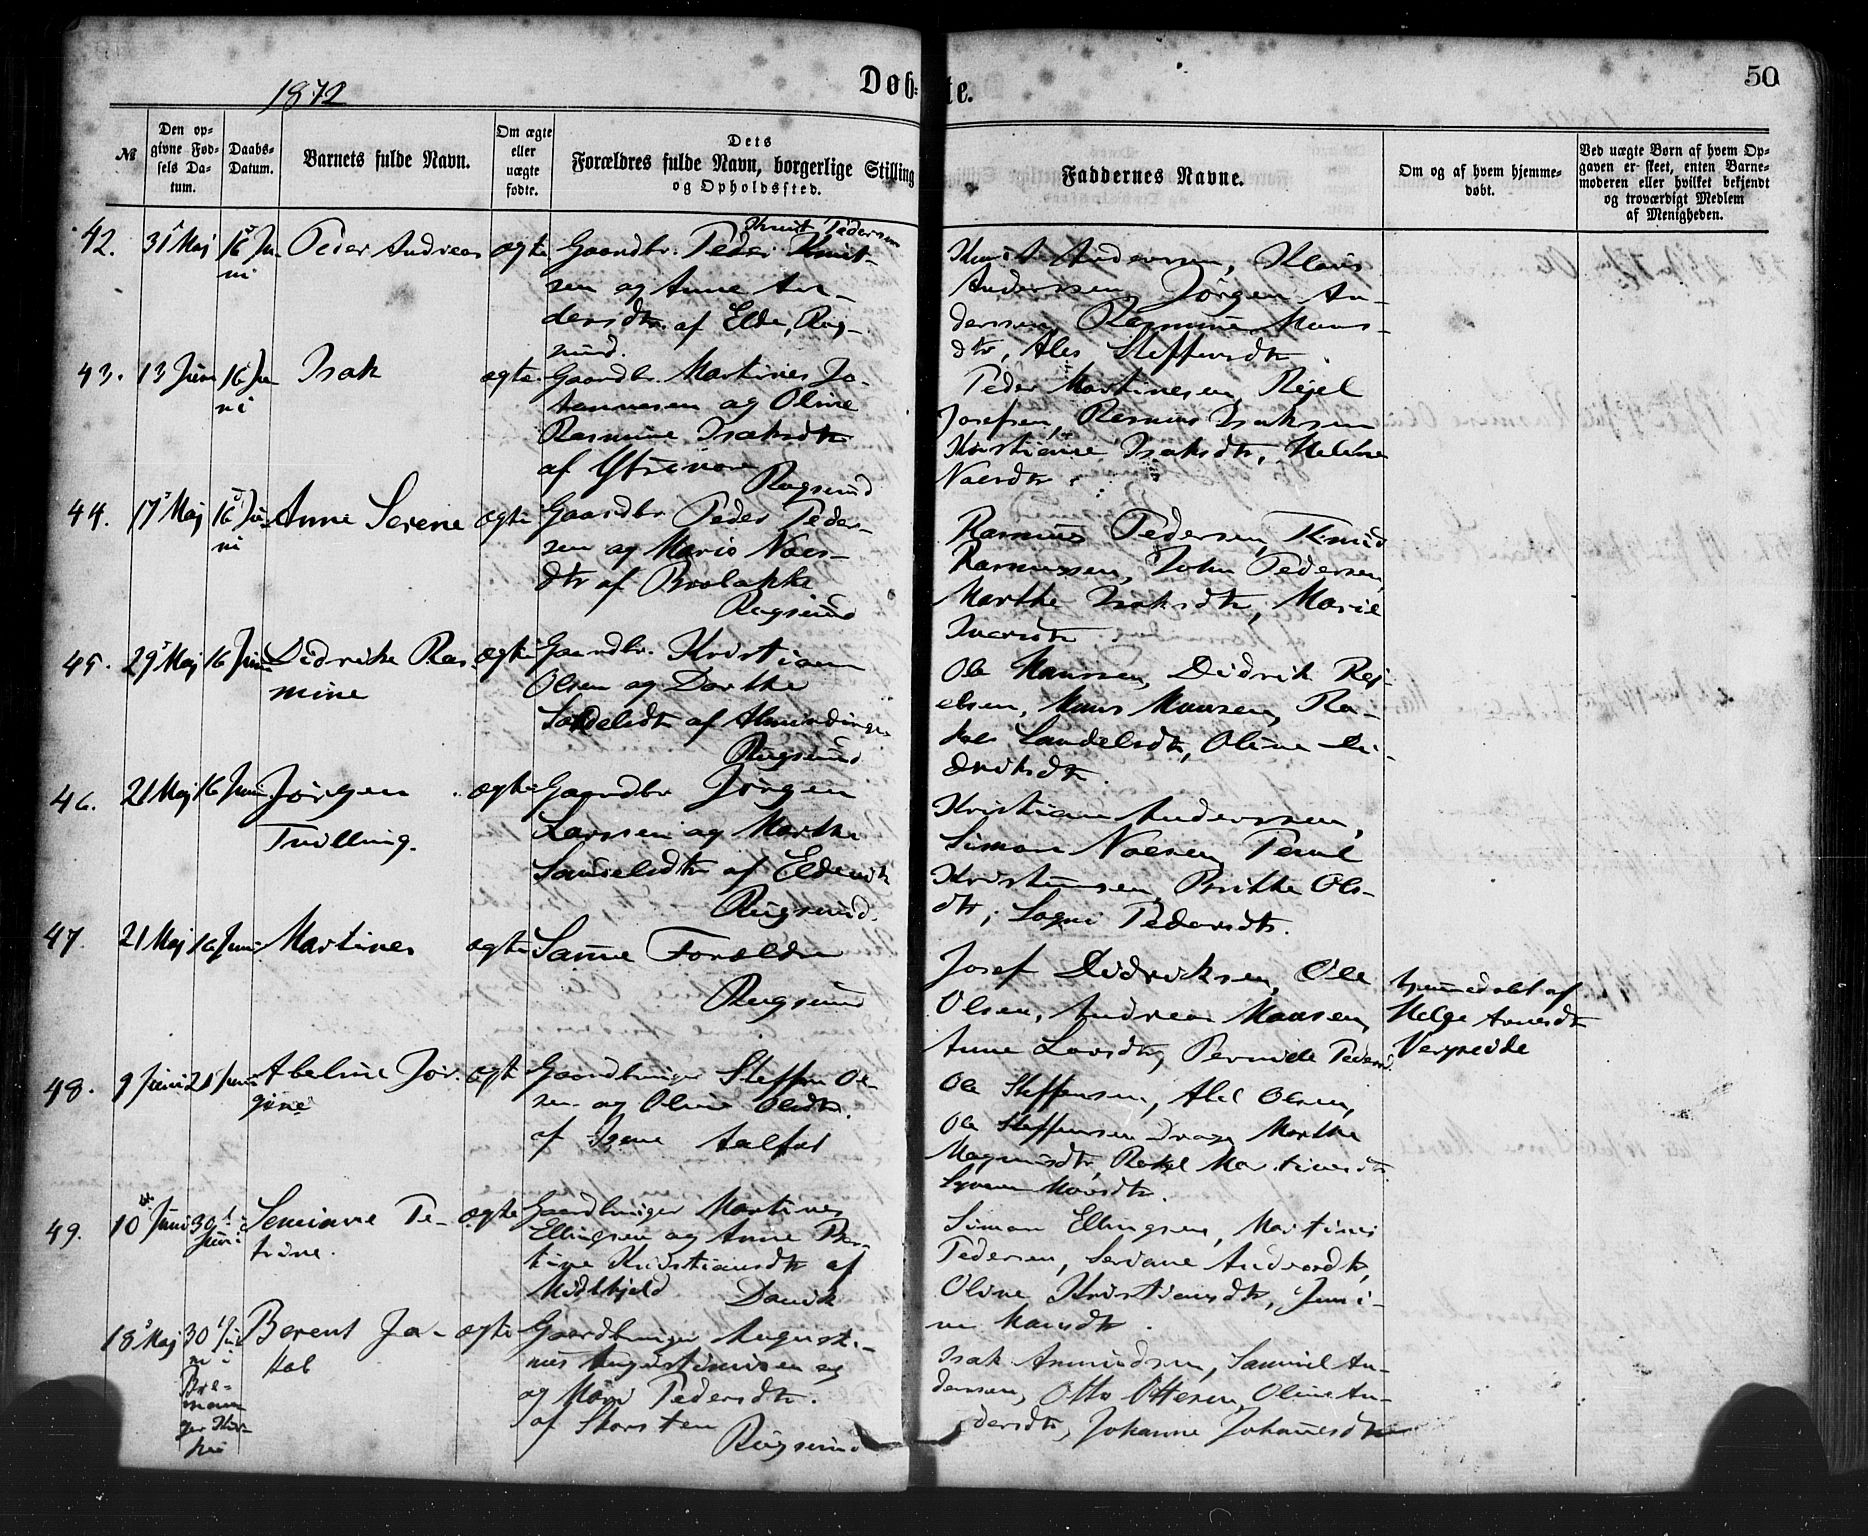 1872
Døb-te.
50
№
Den op-
givne Fød-
sels Da-
tum.
Daabs-
Datum.
Barnets fulde Navn.
Om ægte
eller
uægte
fødte.
Dets
Forældres fulde Navn, borgerlige Stilling
og Opholdssted.
Faddernes Navne.
Om og af hvem hjemme-
døbt.
Ved uægte Børn af hvem Op-
gaven er skeet, enten Barne-
moderen eller hvilket bekjendt
og troværdigt Medlem
af Menigheden.
42.
31 Maj
16 Ju-
ni
Peder Andreas
ægte
Knut Pedersen
Gaardbr. Peder Knut-
sen og Anne An-
dersdtr. af Elde, Rug-
sund.
Knut Anderssen, Klaus
Anderssen, Jørgen An-
derssen, Rasmine Mons-
dtr, Ales Steffensdtr.
43.
13 Juni
16 Ju
ni
Isak
ægte.
Gaardbr. Martines Jo-
hannesen og Oline
Rasmine Isaksdtr
af
Rugsund
Peder Martinesen, Rejel
Josefsen, Rasmus Isaksen
Kristiane Isaksdtr, Helene
Noesdtr.
44.
17 Maj
16 Ju
ni
Anne Serine
ægte
Gaardbr. Peder Peder-
sen og Marie Noes-
dtr af
Rugsund
Rasmus Pedersen, Knud
Rasmussen, John Pedersen,
Marthe Isaksdtr, Marie
Iversdtr
45.
29 Maj
16 Juni
Didrike Ras
mine
ægte
Gaardbr. Kristian
Olsen og Dorthe
af Almindinge
Rugsund
Ole Hanssen, Didrik Rej-
elsen, Mons Monsen, Ra-
kel Sandelsdtr, Oline Di-
driksdtr.
46.
21 Maj
16 Juni
Jørgen
Tvilling.
ægte
Gaardbr Jørgen
Larssen og Marthe
Samuelsdtr af Eldevik
Rugsund.
Kristian Anderssen,
Simon Noesen,
Kristensen, Brithe Ols-
dtr, Pedersdtr.
47.
21 Maj
16 Juni
Martines
ægte
Samme Forældre
Rugsund
Josef Didriksen, Ole
Olsen, Andreas Monsen,
Anne Larsdtr, Pernille Pedersd.
hjemmedøbt af
Helge Arnesdtr
48.
9 Juni
21 Juni
Abeline Jør-
gine
ægte
Gaardbruger Steffen Ol-
sen og Oline Olsdtr.
af Igene Aalfot
Ole Steffensen, Abel Olsen,
Ole Steffensen Marthe
Magnusdtr, Rakel Martinesdtr
Monsdtr.
49.
10 Juni
30te
Juni
Seniane Pe-
trine.
ægte
Gaardbruger Martines
Ellingsen og Anne Ber-
tine Kristiansdtr af
Midthjeld Davik
Simon Ellingsen, Martines
Pedersen, Seriane Andersdtr,
Oline Kristiansdtr, Juni-
ne Monsdtr.
18 Maj
30 Ju-
ni i
Bre-
man-
ger Kir-
ke
Berent Ja-
kob
ægte
Gaardbruger August-
inus Augustinusen og
og Mari Pedersdtr.
af Skorsten
Rugsund
Isak Amundsen, Samuel An-
dersen, Otto Ottesen, Oline An-
dersdtr, Johanne Johannesdtr